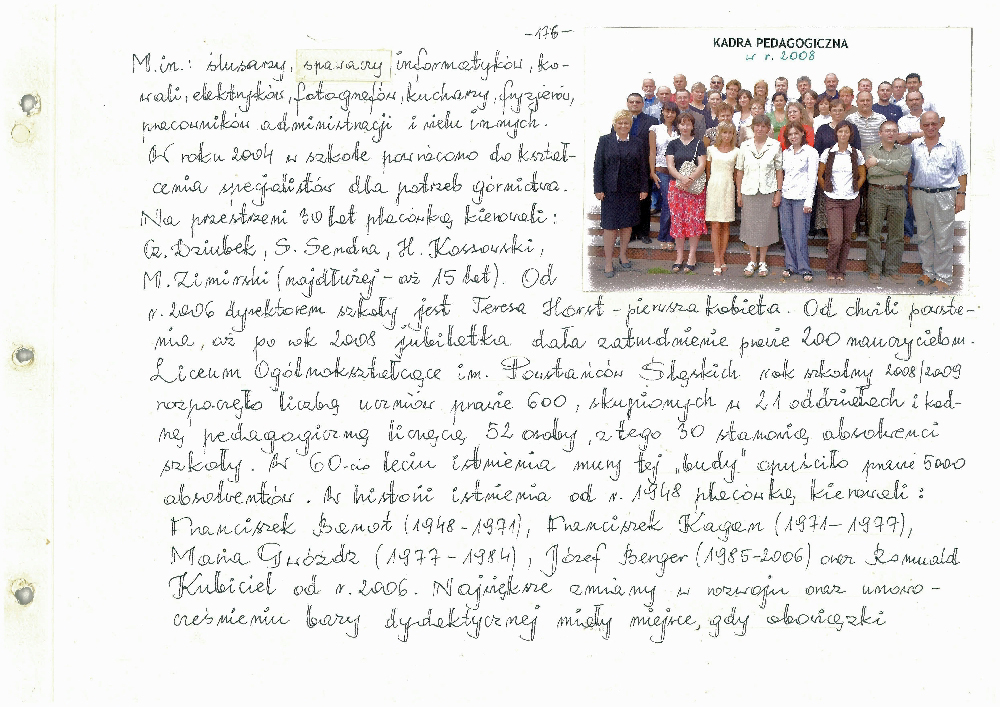 -176-
KADRA PEDAGOGICZNA
w r. 2008
M.in.: ślusarzy, spawaczy informatyków, ko-
wali, elektryków, fotografów, kucharzy, fryzjerów,
pracowników administracji i wielu innych.
W roku 2004 w szkole powrócono do kształ-
cenia specjalistów dla potrzeb górnictwa.
Na przestrzeni 30 lat placówką kierowali:
Cz. Dziubek, S. Sendra, H. Kossowski,
M. Zimirski (najdłużej - aż 15 lat). Od
r. 2006 dyrektorem szkoły jest Teresa Horst - pierwsza kobieta. Od chwili powsta-
nia, aż po rok 2008 jubilatka dała zatrudnienie prawie 200 nauczycielom.
Liceum Ogólnokształcące im. Powstańców Śląskich rok szkolny 2008/2009
rozpoczęło liczbą uczniów prawie 600, skupionych w 21 oddziałach i kad-
rą pedagogiczną liczącą 52 osoby, z tego 30 stanowią absolwenci
szkoły. W 60-cio leciu istnienia mury tej „budy" opuściło prawie 5000
absolwentów. W historii istnienia od r. 1948 placówką kierowali:
Franciszek Banot (1948-1971), Franciszek Kagan (1971-1977),
Maria Gwóźdź (1977-1984), Józef Benger (1985-2006) oraz Romuald
Kubiciel od r. 2006. Największe zmiany w rozwoju oraz unowo-
cześnieniu bazy dydaktycznej miały miejsce, gdy obowiązki